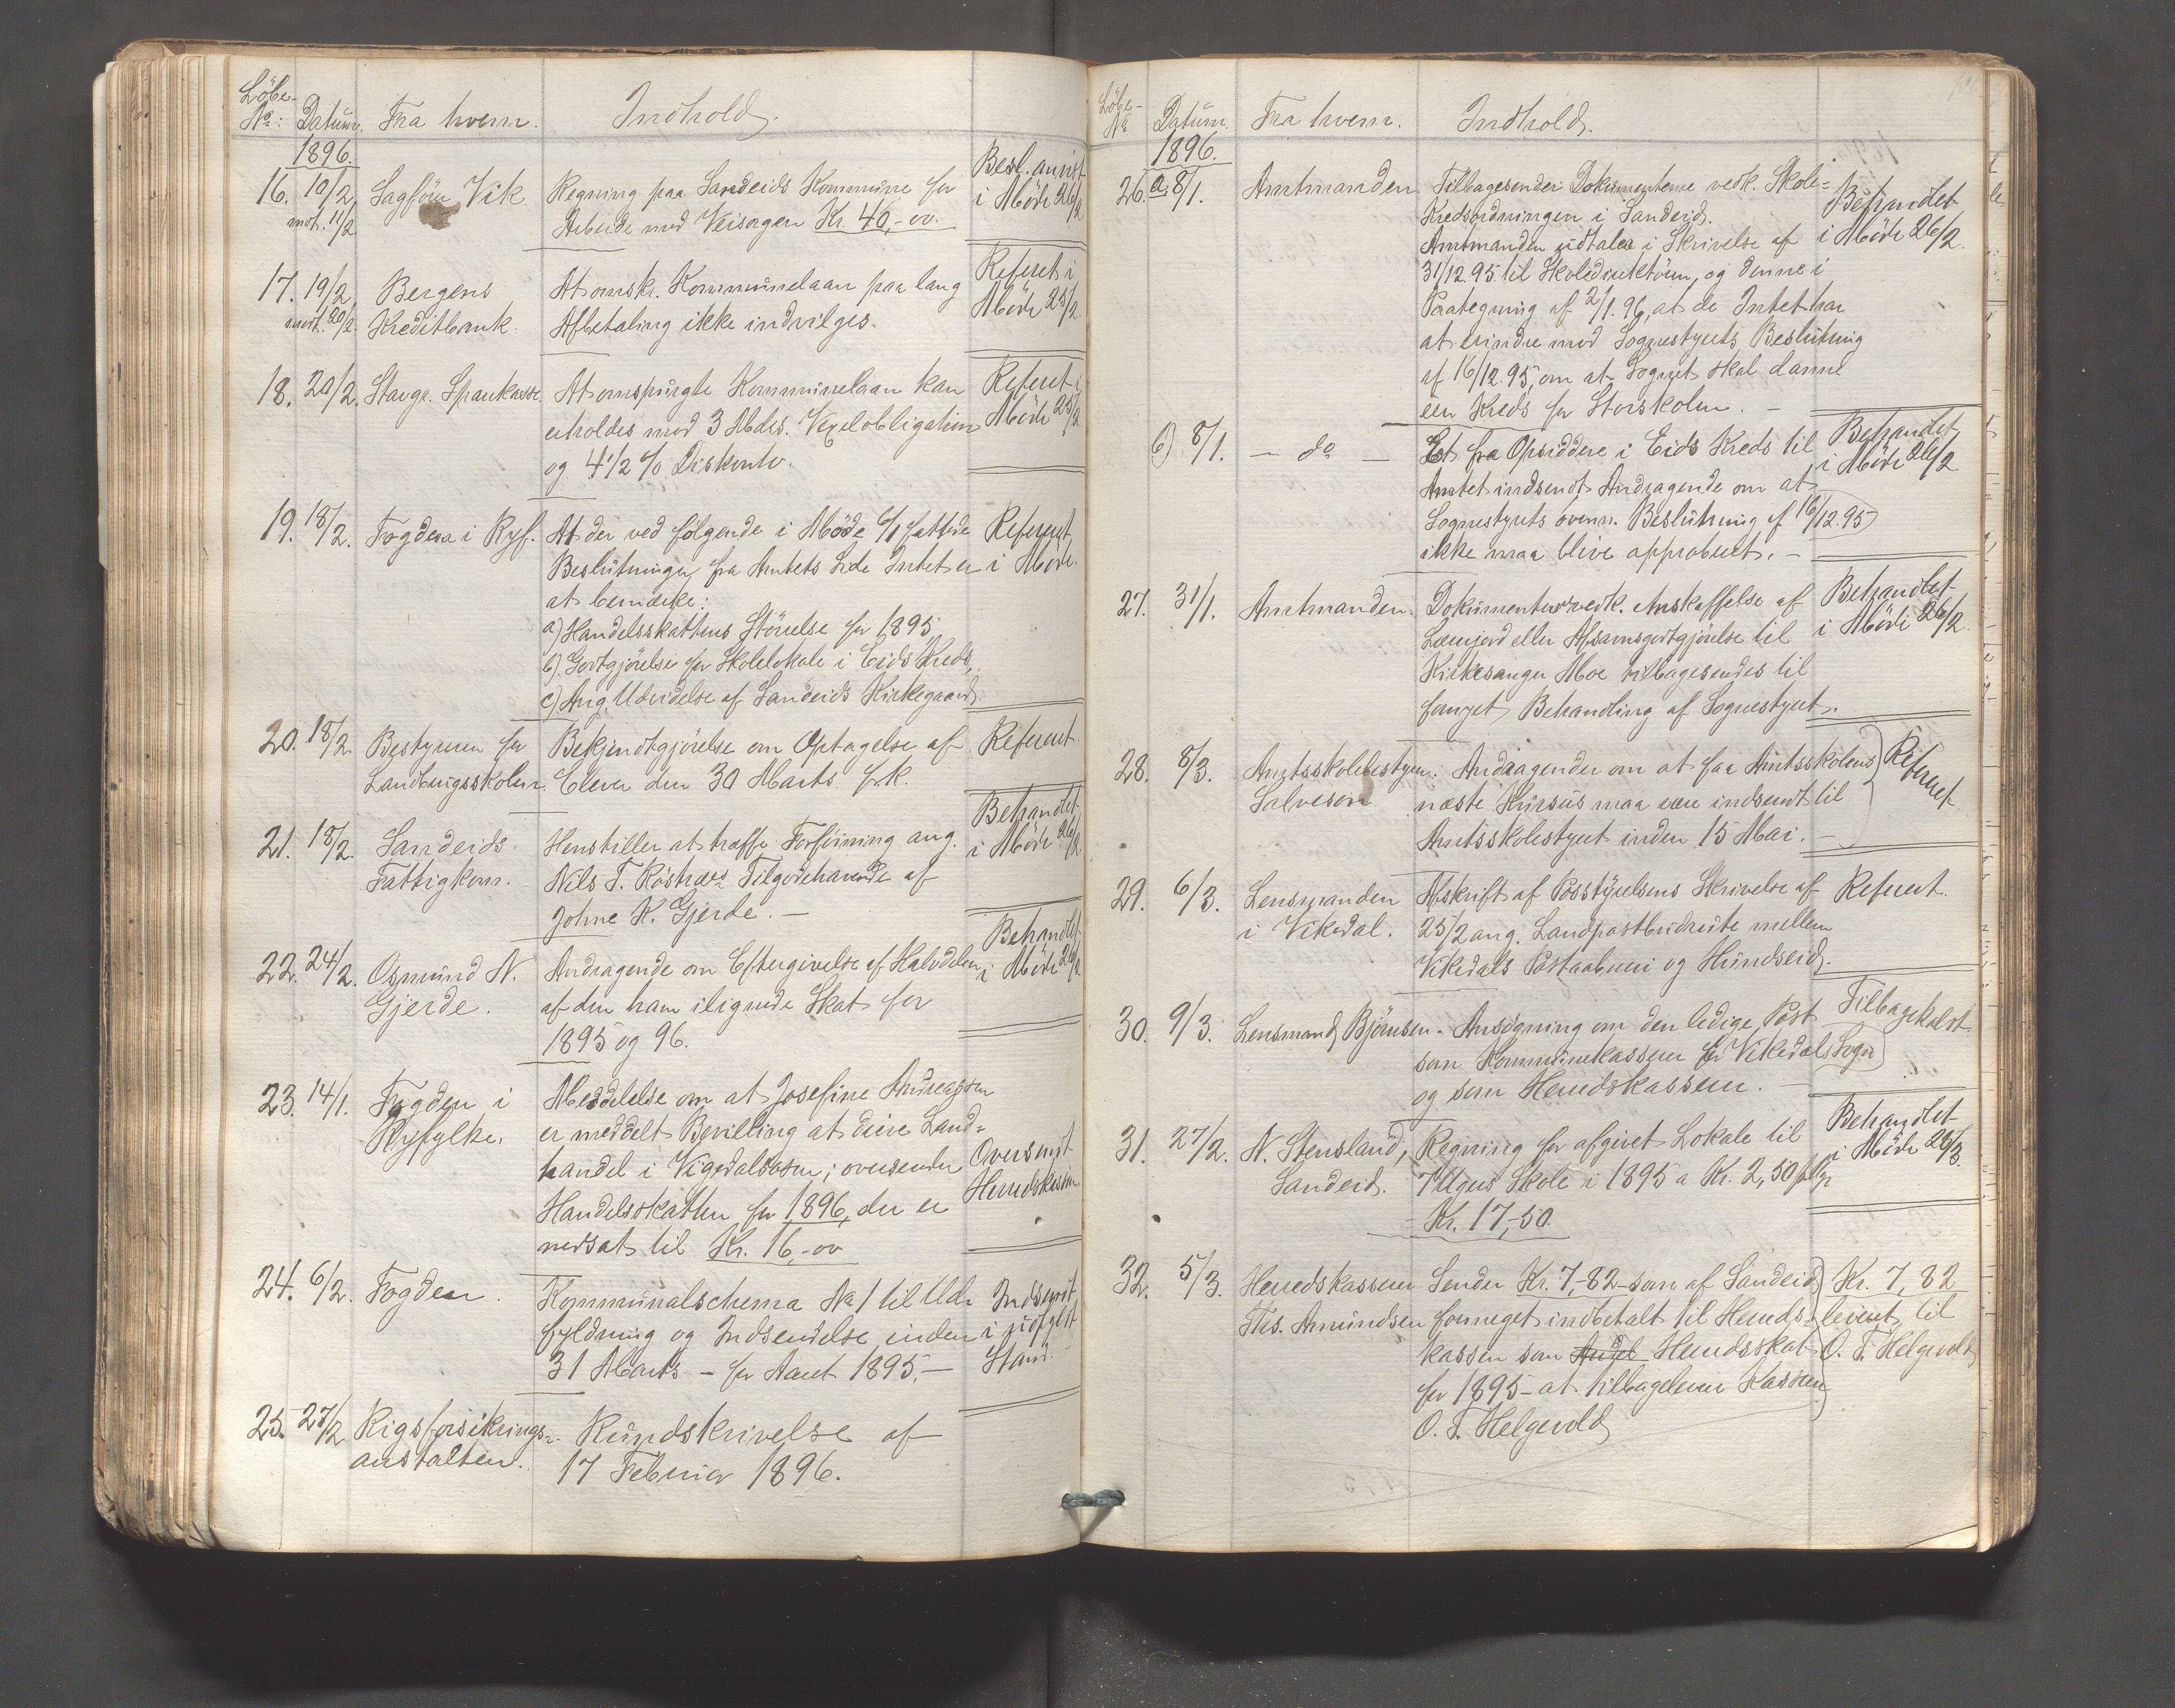 Löbe-
No: Datum. Fra hvem. Indhold.
1896.
16. 10/2, Sagförer Vik Regning paa Sandeids Kommune for Besl. anvist
mot. 11/2. Arbeide med Veisagen Kr. 40,-oo. i Möde 26/2
17. 19/2, Bergens At omskr. Kommunelaan paa lang Referet i
mot. 20/2. Kreditbank. Afbetaling ikke indvilges. Möde 25/2
18. 20/2. Stavgr. Sparekasse. At omspurgte Kommunelaan kan Referet i
erholdes mod 3 Mdrs. Vexelobligation Möde 25/2
og 4 1/2 % Diskonto.
19. 18/2. Fogden i Ryf. At der ved fölgende i Möde 6/1 fattede Referert
Beslutninger, fra Amtets Side Intet er i Möde.
at bemærke:
a) Handelsskattens Störrelse for 1895,
b) Godtgjörelse for Skolelokale i Eids Kreds,
c) Ang. Udvidelse af Sandeids Kirkegaard.
20. 18/2. Bestyreren for Bekjendtgjörelse om Optagelse af Referert
Landbrugsskolen. Elever den 30 Marts f.k.
21. 18/2. Sandeids Henstiller at træffe Forföining ang. Behandlet
Fattigkom. Nils T. Tilgodehavende af i Möde 26/2
Johne K. Gjerde. —
22. 24/2. Osmund N. Andragende om Eftergivelse af Halvdelen Behandlet
Gjerde. af den ham ilignede Skat for i Möde 26/2
1895 og 96.
23. 14/1. Fogden i Meddelelse om at Josefine Andreassen
Ryfylke. er meddelt Bevilling at drive Land=
handel i Vigedalsosen; oversender Oversendt
Handelsskatten for 1896, der er Herredskassen
nedsat til Kr. 16,-oo
24. 6/2. Fogden. Kommunalschema No 1 til Ud= Indsendt
fyldning og Indsendelse inden i udfyldt
31 Marts - for Aaret 1895. — Stand.
25. 27/2. Rigsforsikrings= Rundskrivelse af
anstalten. 17 Februar 1896.
Löbe-
No Datum. Fra hvem. Indhold.
1896.
26. a. 8/1. Amtmanden. Tilbagesender Dokumenterne vedk. Skole= Behandlet
Kredsordningen i Sandeid. i Möde 26/2.
Amtmanden udtaler i Skrivelse af
31/12.95 til Skoledirektören, og denne i
Paategning af 2/1. 96, at de Intet har
at erindre mod Sognestyrets Beslutning
af 16/12.95, om at Sognet skal danne
een Kreds for Storskolen. —
b) 8/1. — do — Et fra Opsiddere i Eids Kreds til Behandlet
Amtet indsendt Andragende om at i Möde 26/2
Sognestyrets ovenn. Beslutning af 16/12.95
ikke maa blive approberet. —
27. 31/1. Amtmanden. Dokumenterne vedk. Anskaffelse af Behandlet
Lærerjord eller Afsavnsgodtgjörelse til i Möde 26/2.
Kirkesanger Moe tilbagesendes til
fornyet Behandling af Sognestyret.
28. 8/3. Amtsskolebestyrer. Andragender om at faa Amtsskolens Referert
Salveson næste Kursus maa være indsendt til
Amtsskolestyret inden 15 Mai. —
29. 6/3. Lensmanden Afskrift af Poststyrelsens Skrivelse af Referert.
i Vikedal. 25/2 ang. Landpostbudruite mellem
Vikedals Postaabneri og Hundseid.
30. 9/3. Lensmand Björnsen. Ansögning om den ledige Post Tilbagekaldt.
som Kommunekasserer for Vikedals Sogn
og som Herredskasserer. —
31. 27/2. N. Stensland, Regning for afgivet Lokale til Behandlet
Sandeid. 7 Ugers Skole i 1895 a Kr. 2,50 pr Uge i Möde 26/3
= Kr. 17,-50.
32. 5/3. Herredskasserer Sender Kr. 7,-82 som af Sandeid Kr. 7,82
Ths. Amundsen formeget indbetalt til Herreds= leveret til
kassen som Andel Herredsskat O. T. Helgevold
for 1895 - at tilbagelevere Kasserer
O. T. Helgevold